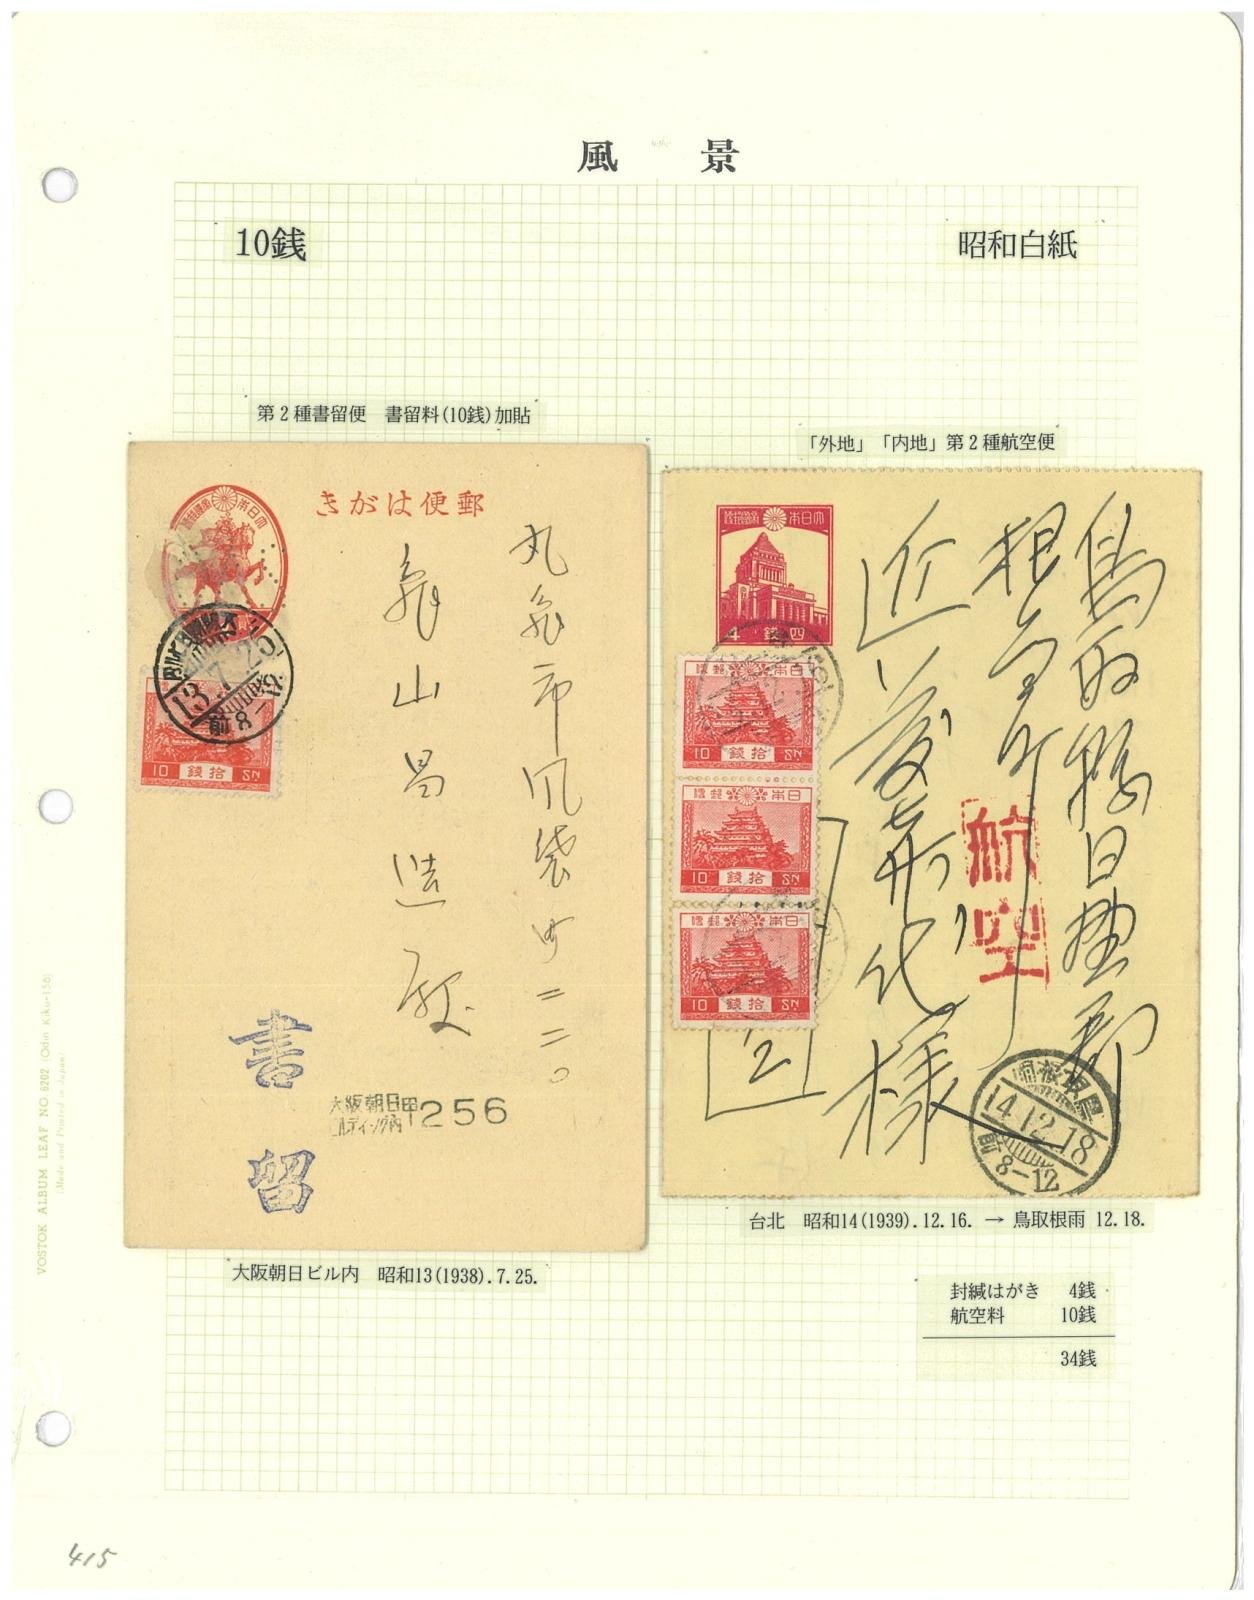 風 景
10銭
昭和白紙
第2種書留便 書留料(10銭)加貼
「外地」「内地」第2種航空便
きがは便郵
丸亀市風袋町二二〇
亀山昌造殿
書留
大阪朝日
ビルディング内
256
13.7.25
8-12
10 銭拾 SN
鳥取縣日野郡
根雨町
近藤寿代様
航空
四銭
4
日本郵便
10 銭拾 SN
日本郵便
10 銭拾 SN
日本郵便
10 銭拾 SN
14.12.18
8-12
大阪朝日ビル内 昭和13(1938).7.25.
台北 昭和14(1939).12.16. → 鳥取根雨 12.18.
封緘はがき 4銭
航空料 10銭
34銭
VOSTOK ALBUM LEAF NO.6202 (Odin Kiku-156)
(Made and Printed in Japan)
415